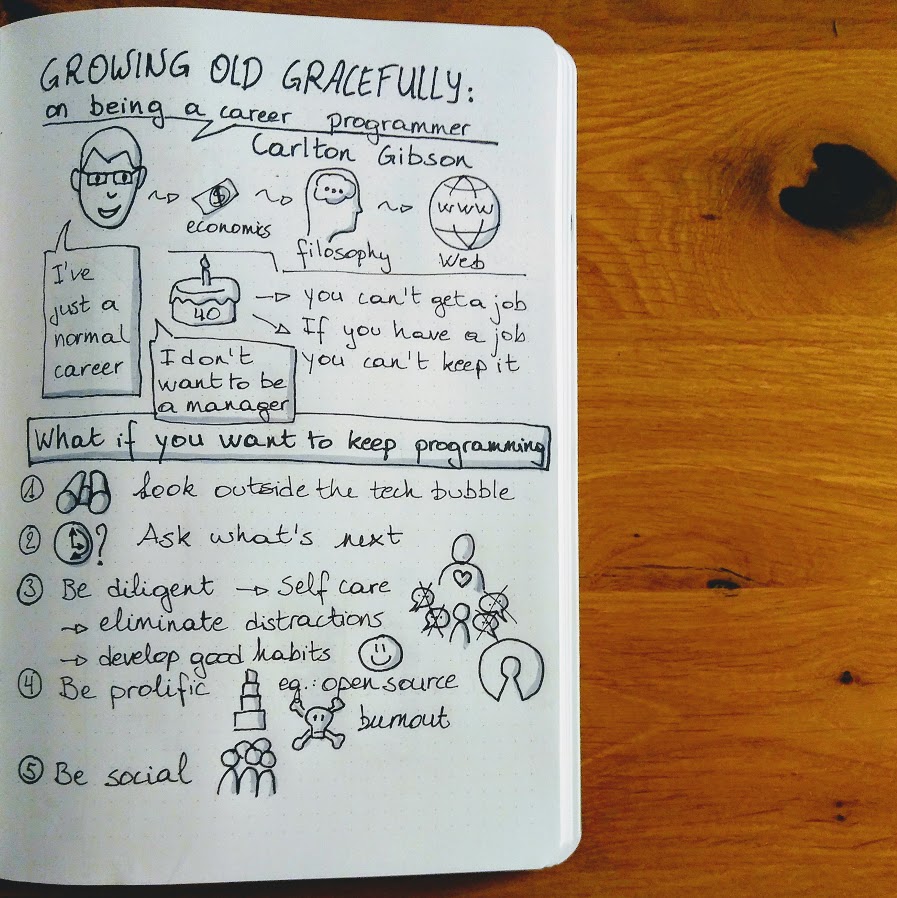 GROWING OLD GRACEFULLY:
on being a career programmer
Carlton Gibson
$
economics
...
filosophy
www
Web
I've
just a
normal
career
40
I don't
want to be
a manager
you can't get a job
If you have a job
you can't keep it
What if you want to keep programming
1 Look outside the tech bubble
2 ? Ask what's next
3 Be diligent → Self care
→ eliminate distractions
→ develop good habits
4 Be prolific eg.: open source
burnout
5 Be social